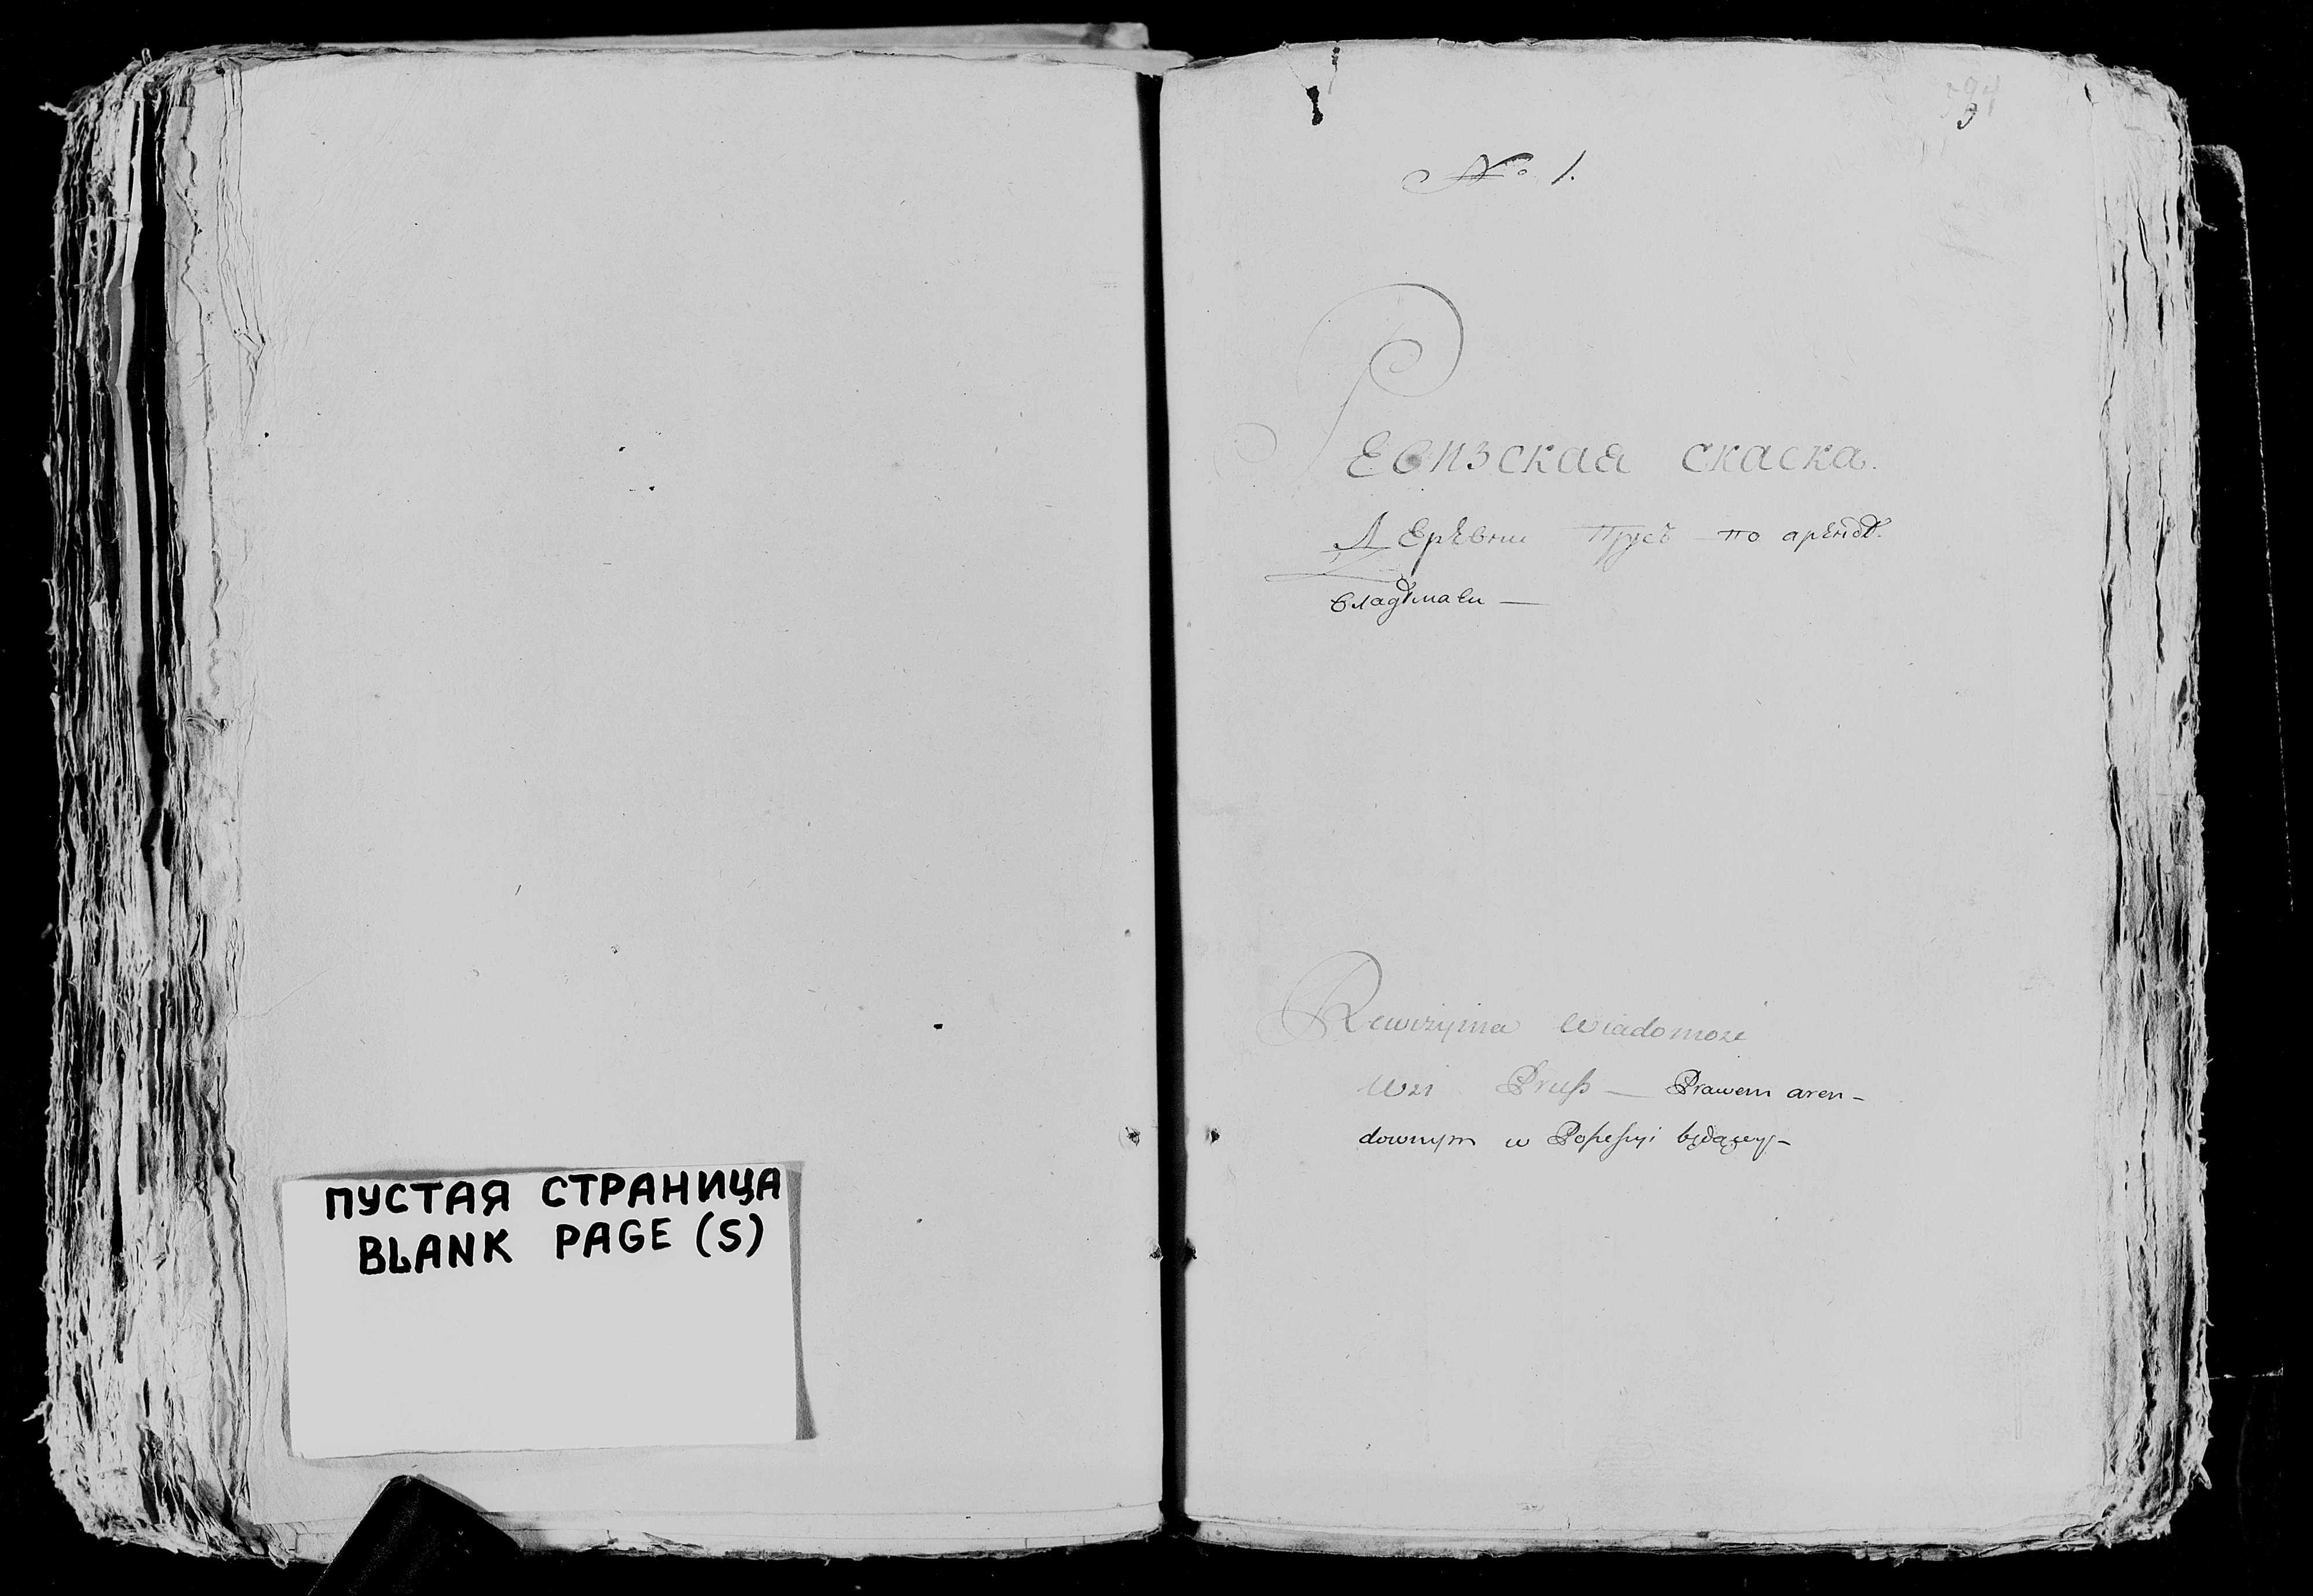 ПУСТАЯ СТРАНИЦА
BLANK PAGE (S)
№ 1.
Ревизская скаска.
Деревни Прусъ по арендѣ
Rewizyina Wiadomosc
Wsi Pruss — Prawem aren-
downym w Possessyi będącey —